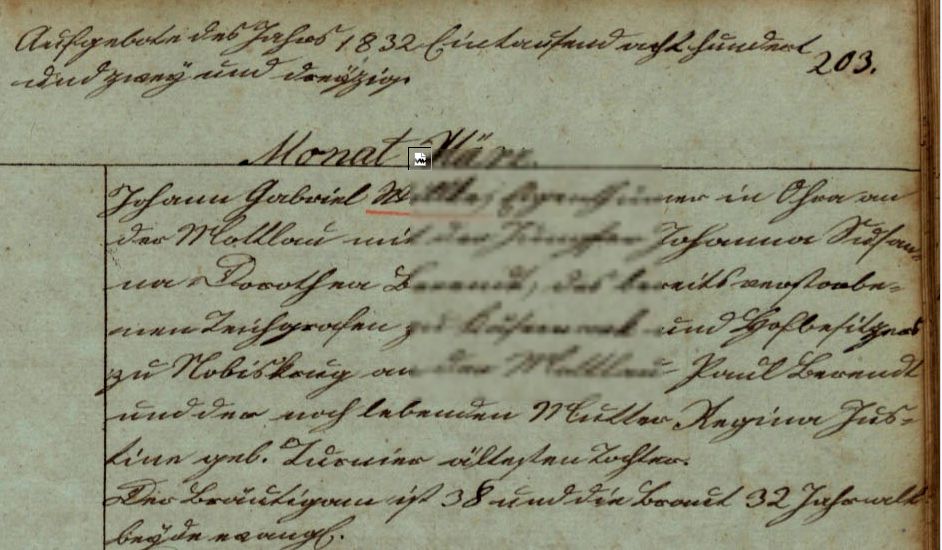 Aufgebote des Jahres 1832 Eintausend acht hundert
und zwey und dreyzig
203.
Monat März.
Johann Gabriel in Ohra an
der Mottlau mit der Jungfer Johanna Susan-
na Dorothea Berendt, des bereits verstorbe-
nen Teichgrafen zu und Hofbesitzers
zu Nobiskrug an der Mottlau Paul Berendt
und der noch lebenden Mutter Regina Jus-
tine geb. Turnier ältesten Tochter.
Der Bräutigam ist 38 und die Braut 32 Jahr alt
beyde evangl.